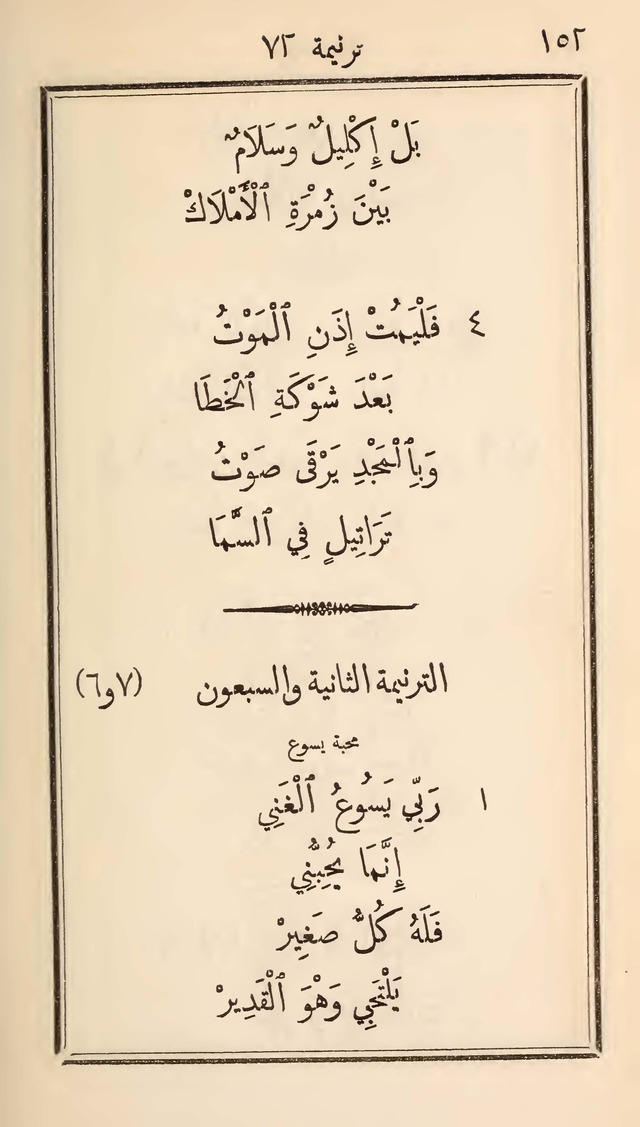 ١٥٢ ترنيمة ٧٢
بَلْ إِكْلِيلٌ وَسَلَامٌ
بَيْنَ زُمْرَةِ ٱلْأَمْلَاكْ
٤ فَلْيَمُتْ إِذَنِ ٱلْمَوْتُ
بَعْدَ شَوْكَةِ ٱلْخَطَا
وَبِٱلْمَجْدِ يَرْقَى صَوْتُ
تَرَاتِيلٍ فِي ٱلسَّمَا
الترنيمة الثانية والسبعون (٧و٦)
محبة يسوع
١ رَبِّي يَسُوعُ ٱلْغَنِي
إِنَّمَا يُحِبُّنِي
فَلَهُ كُلُّ صَغِيرْ
يَلْتَجِي وَهْوَ ٱلْقَدِيرْ